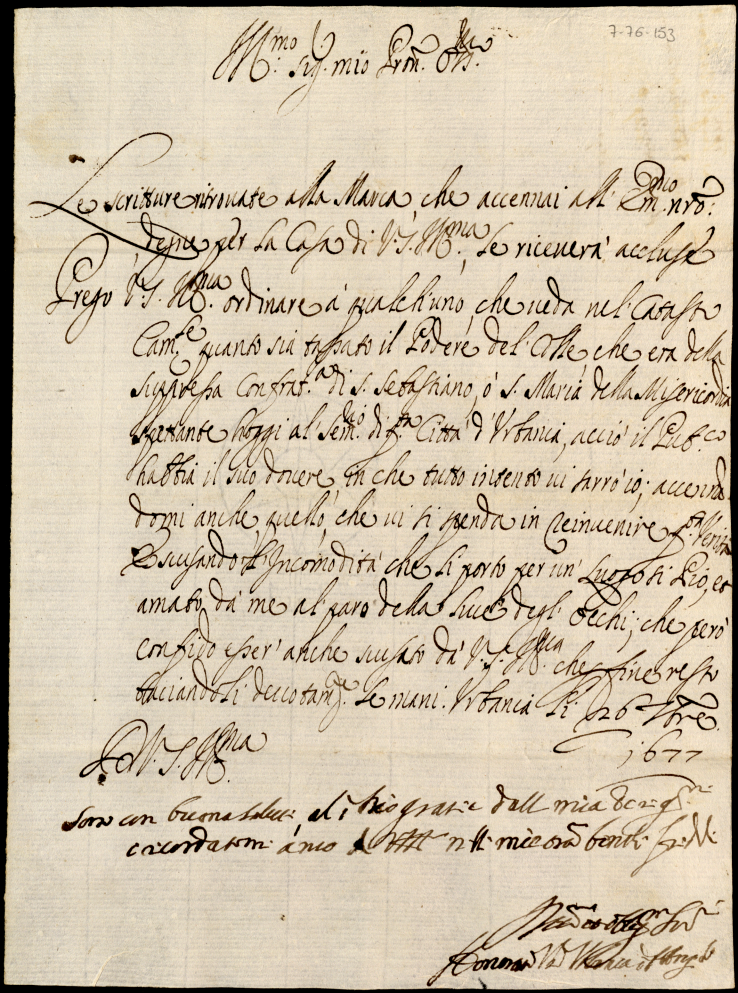 7-76-153
Ill.mo Sig.r mio Pron. Oss.mo
Le scritture ritrovate alla Marca che accennai all' Em.mo nro:
per la Casa di V.S. Ill.ma, le riceverà accluse
Prego V.S. Ill.ma ordinare à qualch'uno, che veda nel Catasto
Cam.le quanto sia tassato il Podere del Colle, che era della
suppressa Confrat.a di S. Sebastiano, ò S. Maria della Misericordia
spettante hoggi al Sem.rio di q.ta Città d'Urbania, acciò il Pub.co
habbia il suo dovere, in che tutto intento vi farrò io; accennan
domi anche quello, che vi si spenda in reinvenire q.ta Verità
Scusando l'Incomodità che li porto per un' Luogo sì Pio, et
amato dà me al paro della luce degl' Occhi; che però
confido esser' anche scusato dà V.S. Ill.ma che fine resto
baciandoli devotam.te le mani. Urbania li 26 9bre
1677
Di V.S. Ill.ma
Sono con buona salute, al Dio gratie dall mia
e ricordatomi anco nell mie